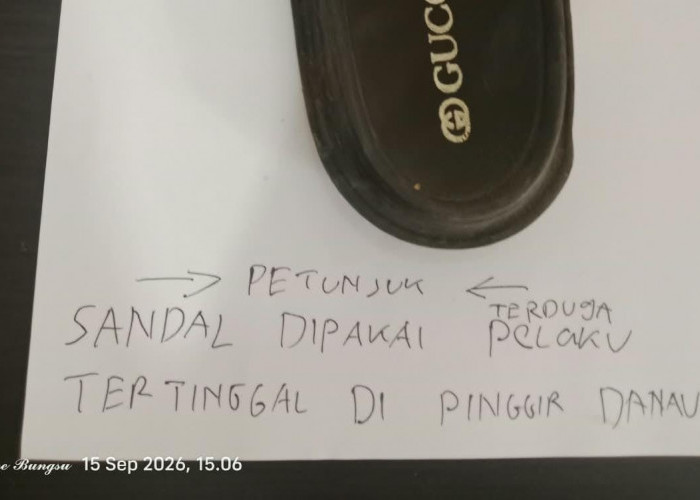 GUCC
→ PETUNJUK ←
TERDUGA
SANDAL DIPAKAI PELAKU
TERTINGGAL DI PINGGIR DANAU
e Bungsu 15 Sep 2026, 15.06